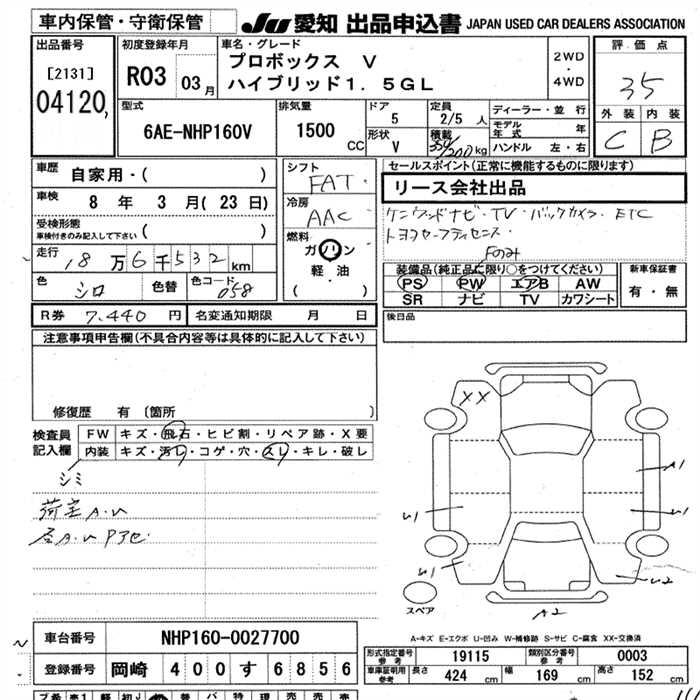 車内保管・守衛保管
JU 愛知 出品申込書 JAPAN USED CAR DEALERS ASSOCIATION
出品番号
[2131]
04120
初度登録年月
R03 03月
車名・グレード
プロボックス V
ハイブリッド1.5GL
2WD
・
4WD
評価点
3.5
外装 内装
C B
型式
6AE-NHP160V
排気量
1500 CC
ドア
5
形状
V
定員
2/5 人
積載
350/200 kg
ディーラー・並行
モデル年式 年
ハンドル 左・右
車歴
自家用・( )
車検
8 年 3 月(23日)
受検形態
車検付きのみ記入して下さい ( )
走行
8 万 6 千 532 km
色 シロ 色替 色コード 058
R券 7,440 円 名変通知期限 月 日
シフト
FAT
冷房
AAC
燃料
ガソリン
・
軽油
( )
セールスポイント(正常に機能するものに限ります)
リース会社出品
ケンウッドナビ・TV・バックカメラ・ETC
トヨタセーフティセンス
Fのみ
装備品(純正品に限り○をつけてください)
PS PW エアB AW
SR ナビ TV カワシート
新車保証書
有・無
後日品
注意事項申告欄(不具合内容等は具体的に記入して下さい)
修復歴 有 〔箇所 〕
検査員
記入欄
FW キズ・飛石・ヒビ割・リペア跡・X要
内装 キズ・汚レ・コゲ・穴・スレ・キレ・破レ
シミ
荷室A.U
XX
A1
U1
U1
U1
U2
スペア
A2
A-キズ E-エクボ U-凹み W-補修跡 S-サビ C-腐食 XX-交換済
車台番号 NHP160-0027700
登録番号 岡崎 400 す 6856
形式指定番号
参考
19115
類別区分番号
参考
0003
車庫証明用
参考
長さ 424 cm 幅 169 cm 高さ 152 cm